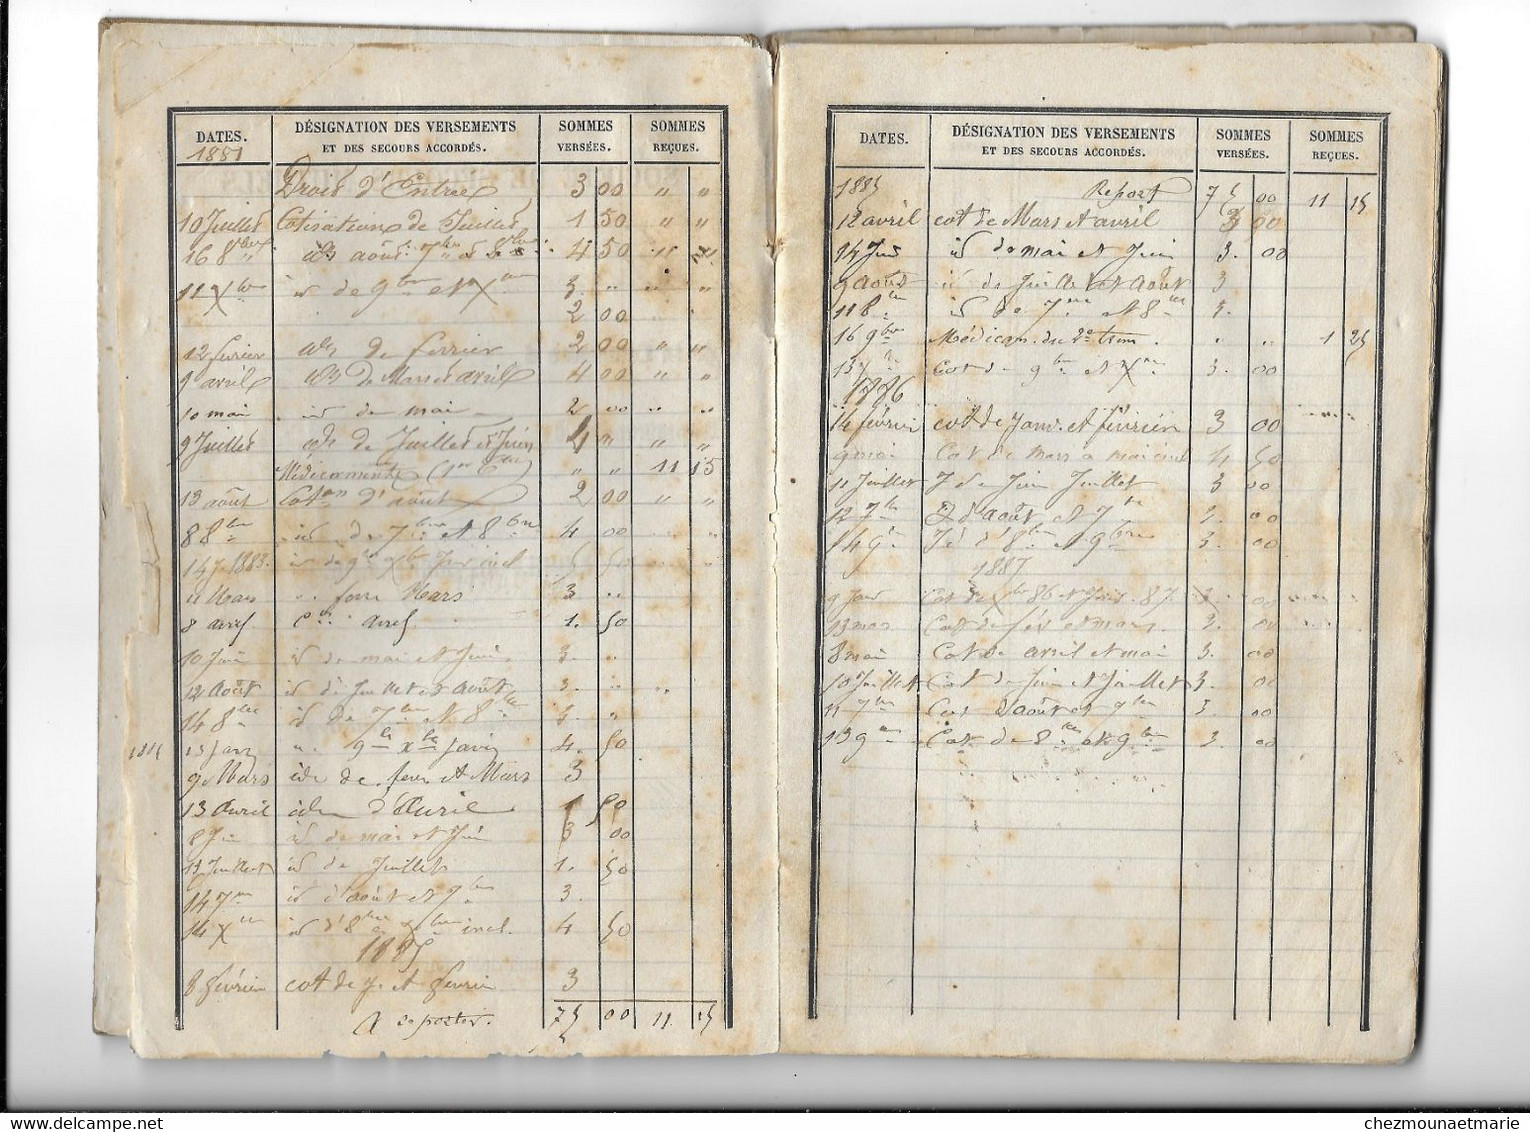 DATES. DÉSIGNATION DES VERSEMENTS ET DES SECOURS ACCORDÉS. SOMMES VERSÉES. SOMMES REÇUES.
1881
Droit d'Entrée 3 00 " "
10 Juillet Cotisation de Juillet 1 50 " "
16 8bre id août 7bre et 8bre 4 50 " "
11 Xbre id de 9bre et Xbre 3 " " "
2 00
12 fevrier id de fevrier 2 00 " "
9 avril id de Mars et avril 4 00 " "
10 mai id de mai 2 00 " "
9 Juillet id de Juillet et Juin 4 " " "
Médicaments " " 11 15
13 août Coton d'août 2 00 " "
8 8bre id de 7bre et 8bre 4 00
14 J 1883 id de 9bre Xbre 50
11 Mars " fevr Mars 3 "
8 avril avril 1. 50
10 Juin id de mai et Juin 3. "
12 Août id de Juillet et août 3. " "
14 8bre id de 7bre et 8bre 3. "
13 Janv " 9bre xbre Janv 4. 50
9 Mars id de fevr et Mars 3
13 Avril idem d'Avril 1 50
8 Juin id de mai et Juin 3 00
Juillet id de Juillet 1. 50
14 7bre id d'août et 7bre 3.
14 Xbre id d'8bre xbre incl. 4 50
1885
8 février cot de J. et fevrier 3
A reporter. 75 00 11 15
DATES. DÉSIGNATION DES VERSEMENTS ET DES SECOURS ACCORDÉS. SOMMES VERSÉES. SOMMES REÇUES.
1885 Report 75 00 11 15
12 avril cot de Mars et avril 3 00
14 Juin id de mai et Juin 3. 00
9 août id de Juillet et Août 3
11 8bre id de 7bre et 8bre 3.
16 9bre Médicam. du 2e trim. " " 1 25
13 Xbre Cot de 9bre et Xbre 3. 00
1886
14 février cot de Janv. et février 3 00
9 mai Cot de mars a mai incl 4 50
11 Juillet Juin Juillet 3 00
12 7bre d'août et 7bre 3. 00
14 9bre Id d'8bre et 9bre 3. 00
1887
9 Janv Cot de Xbre 86 et Janv. 87 3. 00
13 mars Cot de fév et mars. 3. 00
8 mai Cot de avril et mai 3. 00
10 Juillet Cot de Juin et Juillet 3. 00
11 7bre Cot d'août et 7bre 3. 00
13 9bre Cot. de 8bre et 9bre 3. 00
chezmounaetmarie
www.delcampe.net